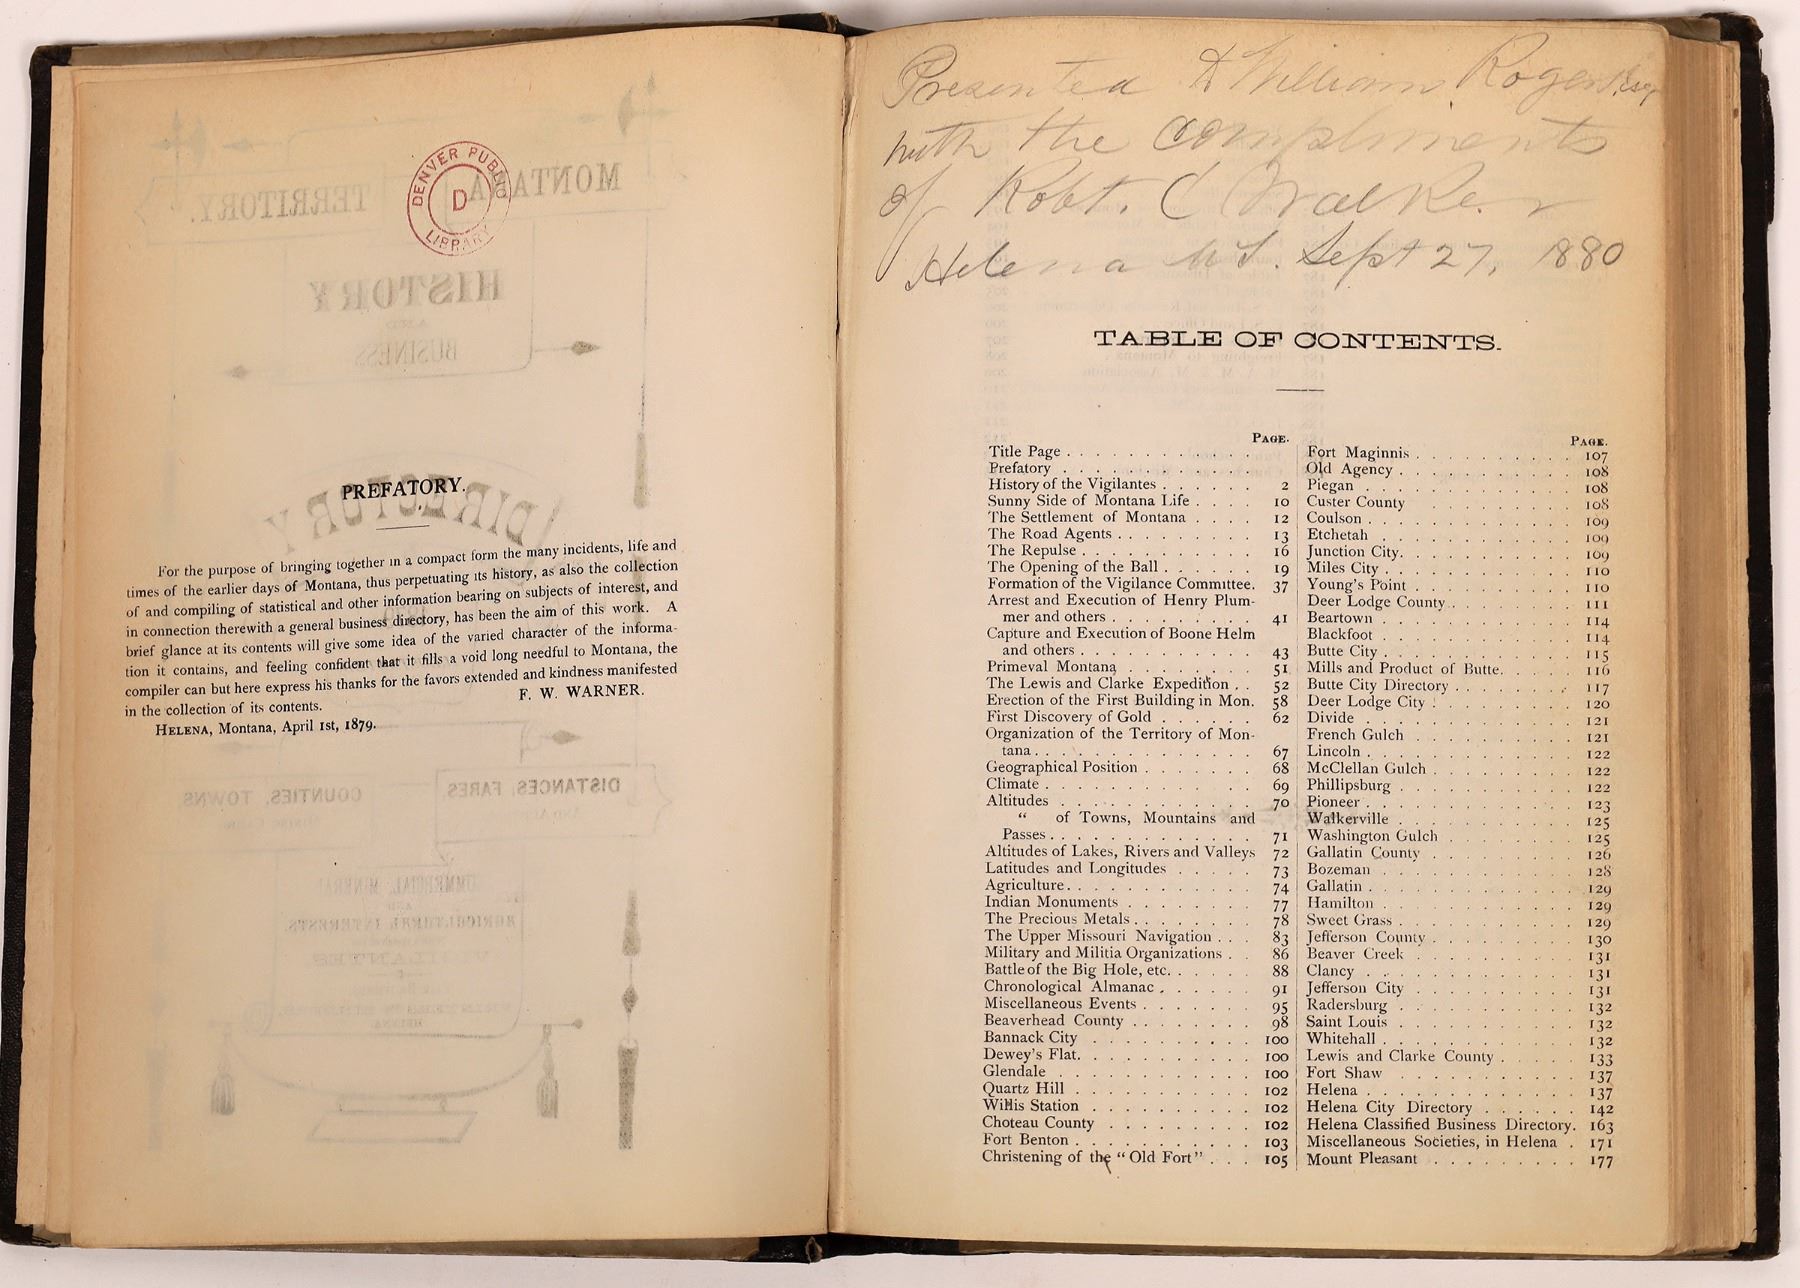 DENVER PUBLIC
D
LIBRARY
MONTANA
TERRITORY.
HISTORY
AND
BUSINESS
DIRECTORY
PREFATORY.
For the purpose of bringing together in a compact form the many incidents, life and
times of the earlier days of Montana, thus perpetuating its history, as also the collection
of and compiling of statistical and other information bearing on subjects of interest, and
in connection therewith a general business directory, has been the aim of this work. A
brief glance at its contents will give some idea of the varied character of the informa-
tion it contains, and feeling confident that it fills a void long needful to Montana, the
compiler can but here express his thanks for the favors extended and kindness manifested
in the collection of its contents.
F. W. WARNER.
HELENA, Montana, April 1st, 1879.
DISTANCES, FARES,
COUNTIES, TOWNS
AGRICULTURAL INTERESTS.
VIGILANTES
HELENA
Presented to William Rogers Esq
with the compliments
of Robt. C Walker
Helena M T. Sept 27, 1880
TABLE OF CONTENTS.
PAGE.
Title Page . . . . . . . . . . . .
Prefatory . . . . . . . . . . . .
History of the Vigilantes . . . . . . 2
Sunny Side of Montana Life . . . . 10
The Settlement of Montana . . . . 12
The Road Agents . . . . . . . . . 13
The Repulse . . . . . . . . . . . 16
The Opening of the Ball . . . . . . 19
Formation of the Vigilance Committee. 37
Arrest and Execution of Henry Plum-
mer and others . . . . . . . . . 41
Capture and Execution of Boone Helm
and others . . . . . . . . . . . 43
Primeval Montana . . . . . . . . 51
The Lewis and Clarke Expedition . . 52
Erection of the First Building in Mon. 58
First Discovery of Gold . . . . . . 62
Organization of the Territory of Mon-
tana . . . . . . . . . . . . . . 67
Geographical Position . . . . . . . 68
Climate . . . . . . . . . . . . . 69
Altitudes . . . . . . . . . . . . 70
“ of Towns, Mountains and
Passes . . . . . . . . . . . . . 71
Altitudes of Lakes, Rivers and Valleys 72
Latitudes and Longitudes . . . . . 73
Agriculture . . . . . . . . . . . . 74
Indian Monuments . . . . . . . . 77
The Precious Metals . . . . . . . . 78
The Upper Missouri Navigation . . . 83
Military and Militia Organizations . . 86
Battle of the Big Hole, etc. . . . . . 88
Chronological Almanac . . . . . . 91
Miscellaneous Events . . . . . . . 95
Beaverhead County . . . . . . . . 98
Bannack City . . . . . . . . . . 100
Dewey's Flat. . . . . . . . . . . 100
Glendale . . . . . . . . . . . . 100
Quartz Hill . . . . . . . . . . . 102
Willis Station . . . . . . . . . . 102
Choteau County . . . . . . . . . 102
Fort Benton . . . . . . . . . . . 103
Christening of the “Old Fort” . . . 105
PAGE.
Fort Maginnis . . . . . . . . . . 107
Old Agency . . . . . . . . . . . 108
Piegan . . . . . . . . . . . . . 108
Custer County . . . . . . . . . 108
Coulson . . . . . . . . . . . . . 109
Etchetah . . . . . . . . . . . . 109
Junction City. . . . . . . . . . . 109
Miles City . . . . . . . . . . . . 110
Young's Point . . . . . . . . . . 110
Deer Lodge County . . . . . . . . 111
Beartown . . . . . . . . . . . . 114
Blackfoot . . . . . . . . . . . . 114
Butte City . . . . . . . . . . . . 115
Mills and Product of Butte. . . . . 116
Butte City Directory . . . . . . . 117
Deer Lodge City . . . . . . . . . 120
Divide . . . . . . . . . . . . . 121
French Gulch . . . . . . . . . . 121
Lincoln . . . . . . . . . . . . . 122
McClellan Gulch . . . . . . . . . 122
Phillipsburg . . . . . . . . . . . 122
Pioneer . . . . . . . . . . . . . 123
Walkerville . . . . . . . . . . . 125
Washington Gulch . . . . . . . . 125
Gallatin County . . . . . . . . . 126
Bozeman . . . . . . . . . . . . 128
Gallatin . . . . . . . . . . . . . 129
Hamilton . . . . . . . . . . . . 129
Sweet Grass . . . . . . . . . . . 129
Jefferson County . . . . . . . . . 130
Beaver Creek . . . . . . . . . . 131
Clancy . . . . . . . . . . . . . 131
Jefferson City . . . . . . . . . . 131
Radersburg . . . . . . . . . . . 132
Saint Louis . . . . . . . . . . . 132
Whitehall . . . . . . . . . . . . 132
Lewis and Clarke County . . . . . 133
Fort Shaw . . . . . . . . . . . 137
Helena . . . . . . . . . . . . . 137
Helena City Directory . . . . . . 142
Helena Classified Business Directory. 163
Miscellaneous Societies, in Helena . 171
Mount Pleasant . . . . . . . . . 177